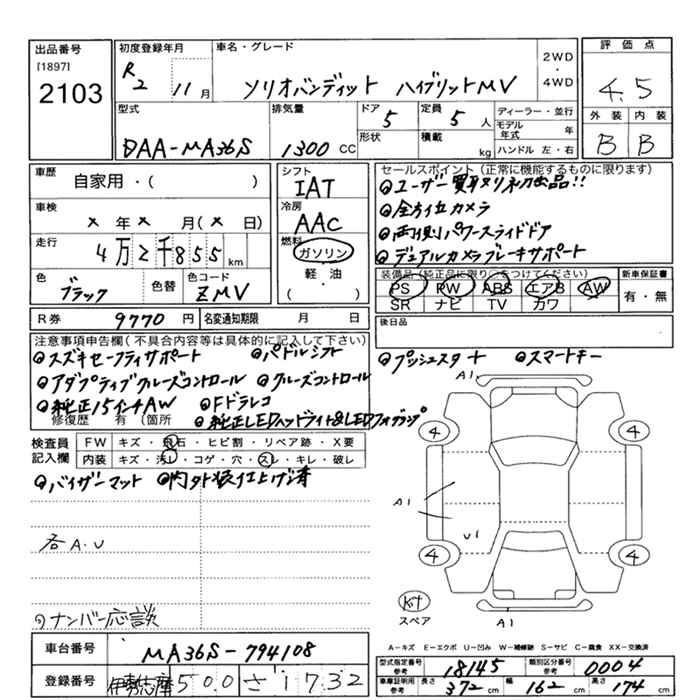 出品番号 初度登録年月 車名・グレード 2WD・4WD 評価点
[1897]
2103 R2 11月 ソリオバンディット ハイブリットMV 4.5
型式 排気量 ドア 5 定員 5人 ディーラー・並行 外装 内装
形状 積載 kg モデル年式 年 B B
DAA-MA36S 1300cc ハンドル 左・右
車歴 自家用・( )
シフト IAT
セールスポイント(正常に機能するものに限ります)
車検 x年x月(x日)
冷房 AAC
走行 4万2千855km
燃料 ガソリン 軽油 ・( )
色 ブラック 色替 色コード ZMV
◎ユーザー買取り初出品!!
◎全方位カメラ
◎両側パワースライドドア
◎デュアルカメラブレーキサポート
装備品(純正品に限り○をつけてください) 新車保証書
PS PW ABS エアB AW 有・無
SR ナビ TV カワ
R券 9770円 名変通知期限 月 日
後日品
注意事項申告欄(不具合内容等は具体的に記入して下さい)
◎スズキセーフティサポート ◎パドルシフト ◎プッシュスタート ◎スマートキー
◎アダプティブクルーズコントロール ◎クルーズコントロール
◎純正15インチAW ◎Fドラレコ
修復歴 有 (箇所 ◎純正LEDヘッドライト&LEDフォグランプ
検査員記入欄 FW キズ・飛石・ヒビ割・リペア跡・X要
内装 キズ・汚レ・コゲ・穴・スレ・キレ・破レ
◎バイザーマット ◎内外装仕上げ済
各A.U
◎ナンバー応談
A1
4 4
A1
U1
4 4
キット
スペア
A1
A-キズ E-エクボ U-凹み W-補修跡 S-サビ C-腐食 XX-交換済
車台番号 MA36S-794108
登録番号 伊勢志摩 500 さ 1732
型式指定番号 参考 18145 類別区分番号 参考 0004
車庫証明用 参考 長さ 372cm 幅 162cm 高さ 174cm